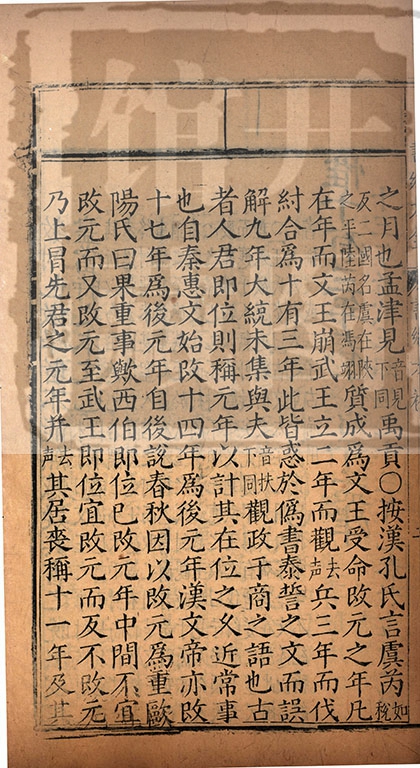 之月也孟津見音見下同禹貢○按漢孔氏言虞芮如稅
反二國名虞在陝之平陸芮在馮翊質成爲文王受命改元之年凡
在年而文王崩武王立二年而觀去聲兵三年而伐
紂合爲十有三年此皆惑於僞書泰誓之文而誤
解九年大統未集與夫音扶下同觀政于商之語也古
者人君即位則稱元年以計其在位之久近常事
也自秦惠文始改十四年爲後元年漢文帝亦改
十七年爲後元年自後說春秋因以改元爲重歐
陽氏曰果重事歟西伯即位已改元年中間不宜
改元而又改元至武王即位宜改元而反不改元
乃上冒先君之元年并去聲其居喪稱十一年及其